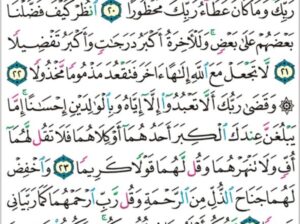 رَبِّكَ وَمَا كَانَ عَطَآءُ رَبِّكَ مَحْظُورًا ٢٠ ٱنظُرْ كَيْفَ فَضَّلْنَا
بَعْضَهُمْ عَلَىٰ بَعْضٍ وَلَلْأَخِرَةُ أَكْبَرُ دَرَجَٰتٍ وَأَكْبَرُ تَفْضِيلًا
٢١ لَّا تَجْعَلْ مَعَ ٱللَّهِ إِلَٰهًا ءَاخَرَ فَتَقْعُدَ مَذْمُومًا مَّخْذُولًا ٢٢
۞ وَقَضَىٰ رَبُّكَ أَلَّا تَعْبُدُوٓا۟ إِلَّآ إِيَّاهُ وَبِٱلْوَٰلِدَيْنِ إِحْسَٰنًا إِمَّا
يَبْلُغَنَّ عِندَكَ ٱلْكِبَرَ أَحَدُهُمَآ أَوْ كِلَاهُمَا فَلَا تَقُل لَّهُمَآ
أُفٍّ وَلَا تَنْهَرْهُمَا وَقُل لَّهُمَا قَوْلًا كَرِيمًا ٢٣ وَٱخْفِضْ
لَهُمَا جَنَاحَ ٱلذُّلِّ مِنَ ٱلرَّحْمَةِ وَقُل رَّبِّ ٱرْحَمْهُمَا كَمَا رَبَّيَانِى